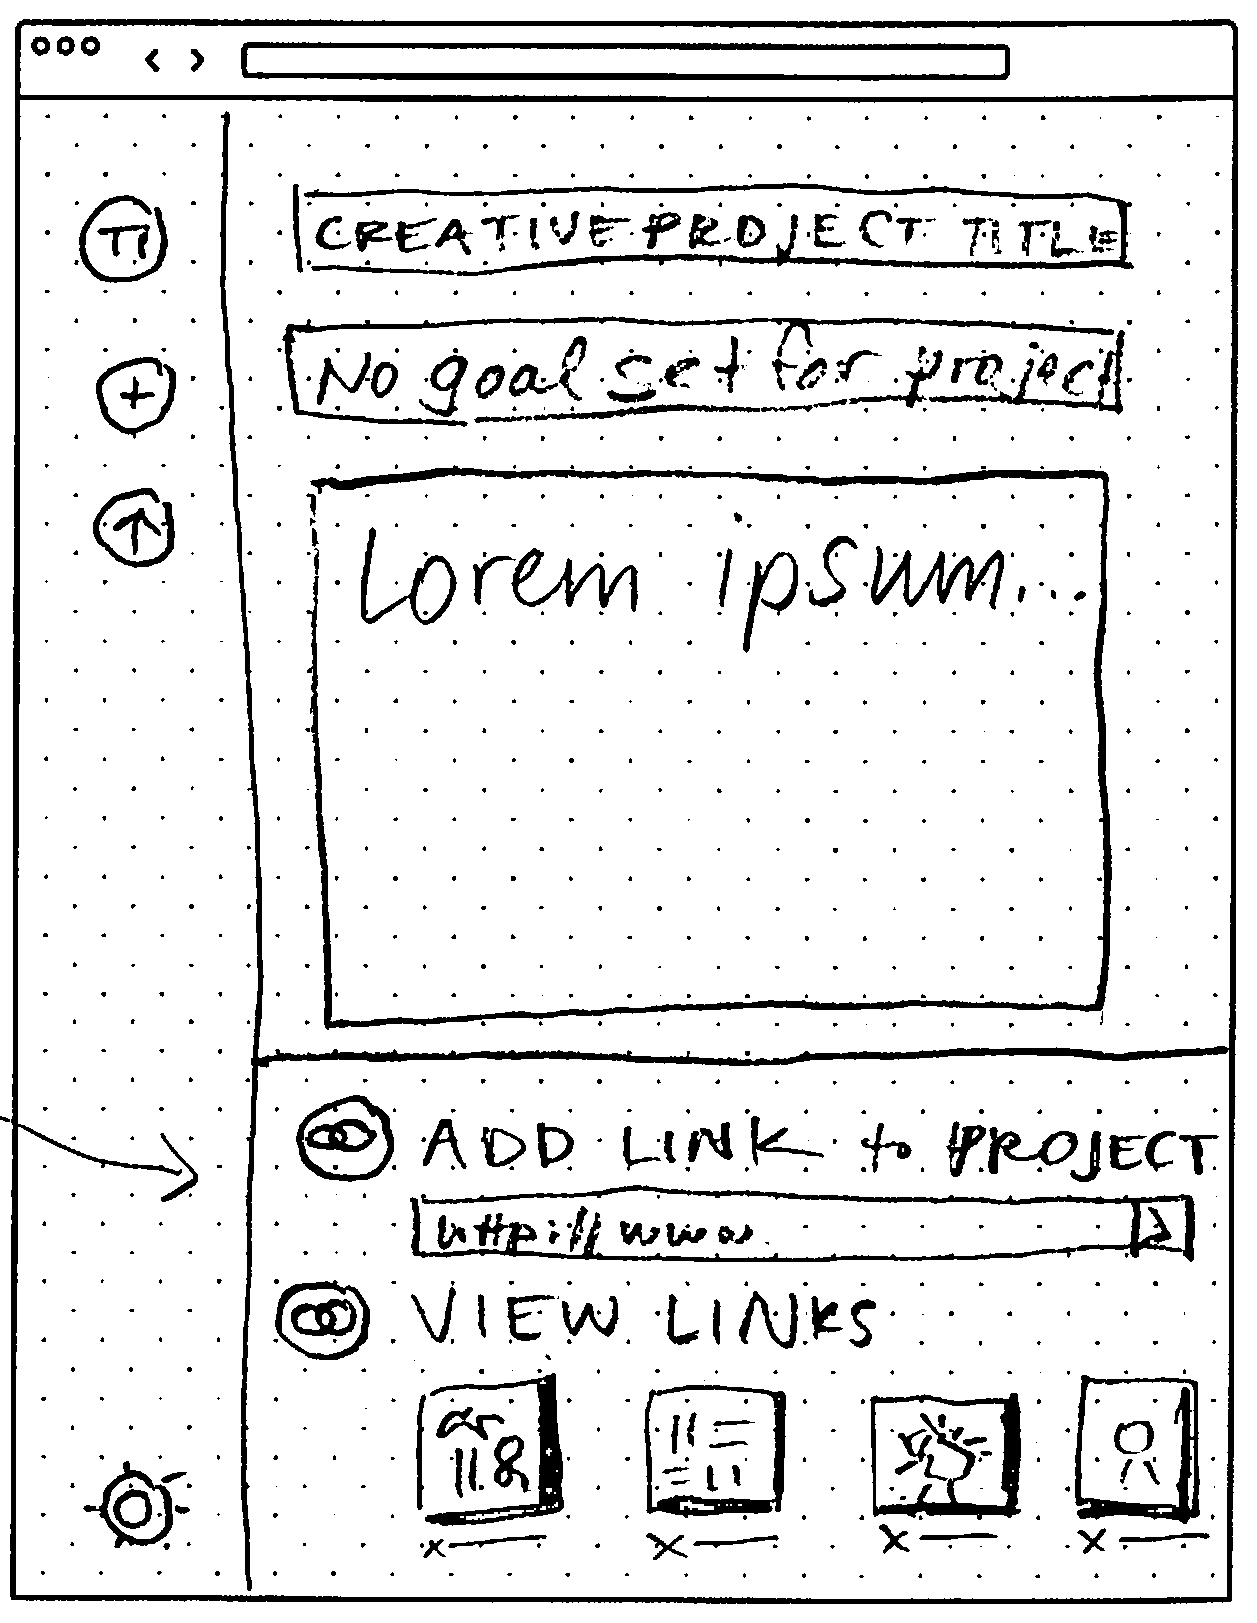 TI
CREATIVE PROJECT TITLE
No goal set for project
Lorem ipsum...
ADD LINK to PROJECT
http://www.
VIEW LINKS